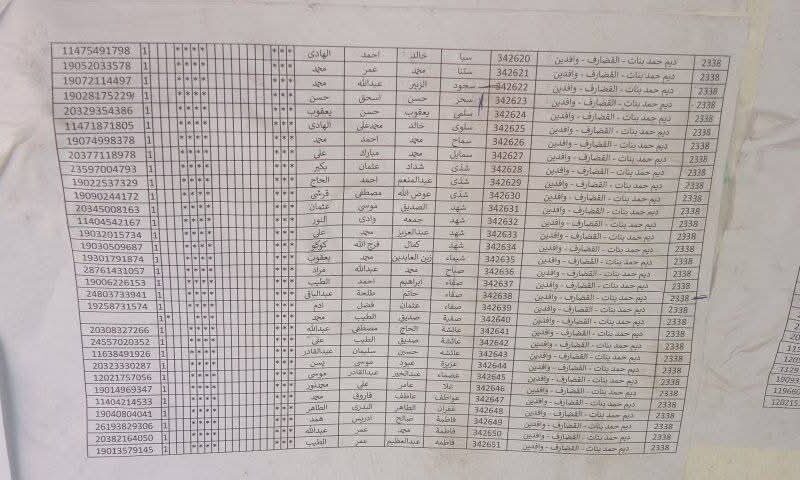 2338 ديم حمد بنات - القضارف - وافدين 342620 سبا خالد احمد الهادى **** *** 1 11475491798
2338 ديم حمد بنات - القضارف - وافدين 342621 ستنا محمد عمر محمد **** *** 1 19052033578
2338 ديم حمد بنات - القضارف - وافدين 342622 سجود الزبير عبدالله محمد **** *** 1 19072114497
2338 ديم حمد بنات - القضارف - وافدين 342623 سحر حسن اسحق حسن **** *** 1 19028175229
2338 ديم حمد بنات - القضارف - وافدين 342624 سلمى يعقوب حسن يعقوب **** *** 1 20329354386
2338 ديم حمد بنات - القضارف - وافدين 342625 سلوى خالد محمدعلى الهادى **** *** 1 11471871805
2338 ديم حمد بنات - القضارف - وافدين 342626 سماح محمد احمد محمد **** *** 1 19074998378
2338 ديم حمد بنات - القضارف - وافدين 342627 سمايل محمد مبارك على **** *** 1 20377118978
2338 ديم حمد بنات - القضارف - وافدين 342628 شذى شداد عثمان بكير **** *** 1 23597004793
2338 ديم حمد بنات - القضارف - وافدين 342629 شذى عبدالمنعم احمد الحاج **** *** 1 19022537329
2338 ديم حمد بنات - القضارف - وافدين 342630 شذى عوض الله مصطفى قرشي **** *** 1 19090244172
2338 ديم حمد بنات - القضارف - وافدين 342631 شهد الصديق موسى عثمان **** *** 1 20345008163
2338 ديم حمد بنات - القضارف - وافدين 342632 شهد جمعه وادى النور **** *** 1 11404542167
2338 ديم حمد بنات - القضارف - وافدين 342633 شهد عبدالعزيز محمد على **** *** 1 19032015734
2338 ديم حمد بنات - القضارف - وافدين 342634 شهد كمال فرج الله كوكو **** *** 1 19030509687
2338 ديم حمد بنات - القضارف - وافدين 342635 شيماء زين العابدين محمد يعقوب **** *** 1 19301791874
2338 ديم حمد بنات - القضارف - وافدين 342636 صباح محمد عبدالله مراد **** *** 1 28761431057
2338 ديم حمد بنات - القضارف - وافدين 342637 صفاء ابراهيم احمد الطيب **** *** 1 19006226153
2338 ديم حمد بنات - القضارف - وافدين 342638 صفاء حاتم طلحة عبدالباقي **** *** 1 24803733941
2338 ديم حمد بنات - القضارف - وافدين 342639 صفاء عثمان فضل ادم **** *** 1 19258731574
2338 ديم حمد بنات - القضارف - وافدين 342640 صفية صديق الطيب محمد *** * 1
2338 ديم حمد بنات - القضارف - وافدين 342641 عائشة الحاج مصطفى عبدالله **** *** 1 20308327266
2338 ديم حمد بنات - القضارف - وافدين 342642 عائشة صديق الطيب على **** *** 1 24557020352
2338 ديم حمد بنات - القضارف - وافدين 342643 عائشه حسين سليمان عبدالقادر **** *** 1 11638491926
2338 ديم حمد بنات - القضارف - وافدين 342644 عزيزة عبود موسى يسن **** *** 1 20323330287
2338 ديم حمد بنات - القضارف - وافدين 342645 عصماء عبدالخير عبدالقادر موسى **** *** 1 12021757056
2338 ديم حمد بنات - القضارف - وافدين 342646 علا عامر على محمدنور **** *** 1 19014969347
2338 ديم حمد بنات - القضارف - وافدين 342647 عواطف عاطف فاروق محمد **** *** 1 11404214533
2338 ديم حمد بنات - القضارف - وافدين 342648 غفران الطاهر البدرى الطاهر **** *** 1 19040804041
2338 ديم حمد بنات - القضارف - وافدين 342649 فاطمة صالح ادريس همد **** *** 1 26193829306
2338 ديم حمد بنات - القضارف - وافدين 342650 فاطمة محمد عمر عبدالله **** *** 1 20382164050
2338 ديم حمد بنات - القضارف - وافدين 342651 فاطمه عبدالعظيم عمر الطيب **** *** 1 19013579145